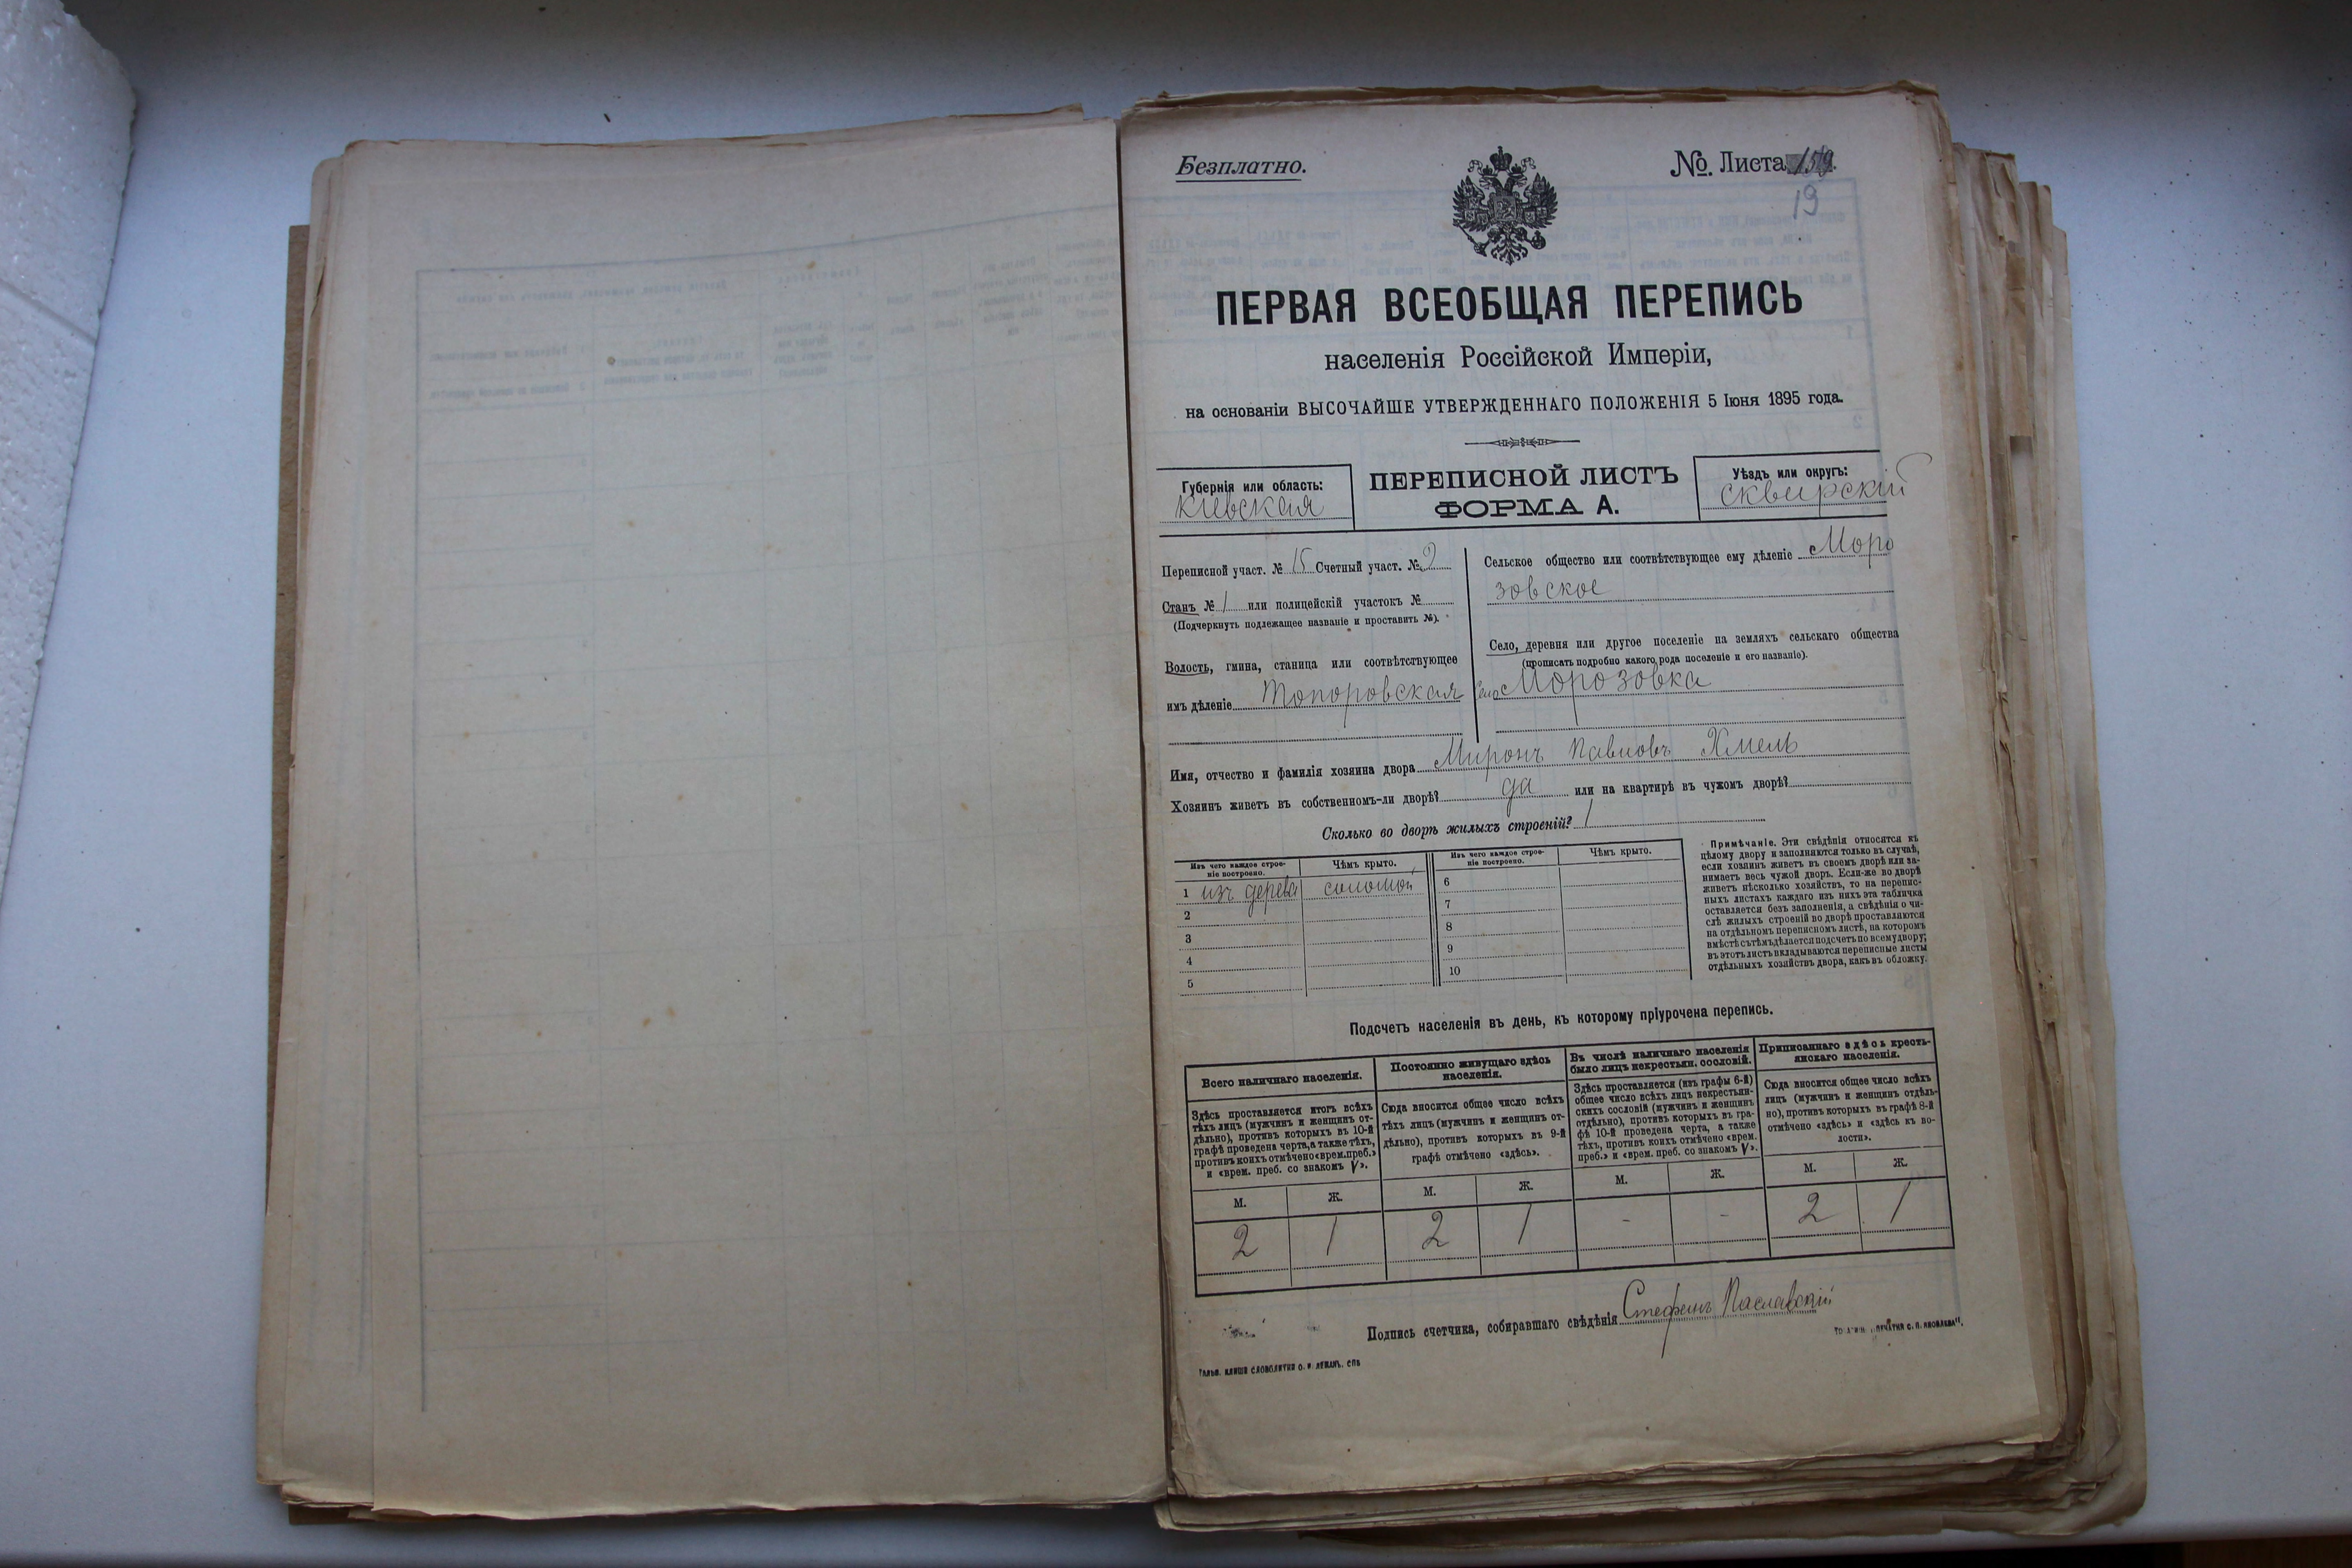 Безплатно.
№ Листа 159.
19
ПЕРВАЯ ВСЕОБЩАЯ ПЕРЕПИСЬ
населенія Россійской Имперіи,
на основаніи ВЫСОЧАЙШЕ УТВЕРЖДЕННАГО ПОЛОЖЕНІЯ 5 Іюня 1895 года.
Губернія или область:
Кіевская
ПЕРЕПИСНОЙ ЛИСТЪ
ФОРМА А.
Уѣздъ или округъ:
Сквирскій
Переписной участ. № 15 Счетный участ. № 2
Станъ № 1 или полицейскій участокъ №
(Подчеркнуть подлежащее названіе и проставить №).
Волость, гмина, станица или соотвѣтствующее
имъ дѣленіе Топоровская
Сельское общество или соотвѣтствующее ему дѣленіе Моро
зовское
Село, деревня или другое поселеніе на земляхъ сельскаго общества
(прописать подробно какого рода поселеніе и его названіе).
село Морозовка
Имя, отчество и фамилія хозяина двора Миронъ Павловъ Хмель
Хозяинъ живетъ въ собственномъ-ли дворѣ? да или на квартирѣ въ чужомъ дворѣ?
Сколько во дворѣ жилыхъ строеній? 1
Изъ чего каждое строе-
ніе построено.
Чѣмъ крыто.
Изъ чего каждое строе-
ніе построено.
Чѣмъ крыто.
1 изъ дерева соломой 6
2 7
3 8
4 9
5 10
Примѣчаніе. Эти свѣдѣнія относятся къ
цѣлому двору и заполняются только въ случаѣ,
если хозяинъ живетъ въ своемъ дворѣ или за-
нимаетъ весь чужой дворъ. Если-же во дворѣ
живетъ нѣсколько хозяйствъ, то на перепис-
ныхъ листахъ каждаго изъ нихъ эта табличка
оставляется безъ заполненія, а свѣдѣнія о чи-
слѣ жилыхъ строеній во дворѣ проставляются
на отдѣльномъ переписномъ листѣ, на которомъ
вмѣстѣ съ тѣмъ дѣлается подсчетъ по всему двору;
въ этотъ листъ вкладываются переписные листы
отдѣльныхъ хозяйствъ двора, какъ въ обложку.
Подсчетъ населенія въ день, къ которому пріурочена перепись.
Всего наличнаго населенія.
Здѣсь проставляется итогъ всѣхъ
тѣхъ лицъ (мужчинъ и женщинъ от-
дѣльно), противъ которыхъ въ 10-й
графѣ проведена черта, а также тѣхъ,
противъ коихъ отмѣчено «врем. преб.»
и «врем. преб. со знакомъ V».
М. Ж.
2 1
Постоянно живущаго здѣсь
населенія.
Сюда вносится общее число всѣхъ
тѣхъ лицъ (мужчинъ и женщинъ от-
дѣльно), противъ которыхъ въ 9-й
графѣ отмѣчено «здѣсь».
М. Ж.
2 1
Въ числѣ наличнаго населенія
было лицъ некрестьян. сословій.
Здѣсь проставляется (изъ графы 6-й)
общее число всѣхъ лицъ некрестьян-
скихъ сословій (мужчинъ и женщинъ
отдѣльно), противъ которыхъ въ гра-
фѣ 10-й проведена черта, а также
тѣхъ, противъ коихъ отмѣчено «врем.
преб.» и «врем. преб. со знакомъ V».
М. Ж.
- -
Приписаннаго здѣсь кресть-
янскаго населенія.
Сюда вносится общее число всѣхъ
лицъ (мужчинъ и женщинъ отдѣль-
но), противъ которыхъ въ графѣ 8-й
отмѣчено «здѣсь» и «здѣсь къ во-
лости».
М. Ж.
2 1
Подпись счетчика, собиравшаго свѣдѣнія Стефанъ Паславскій